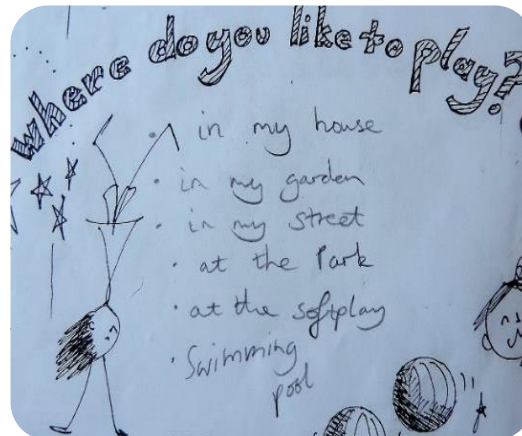 where do you like to play?
• in my house
• in my garden
• in my street
• at the Park
• at the softplay
• Swimming
pool